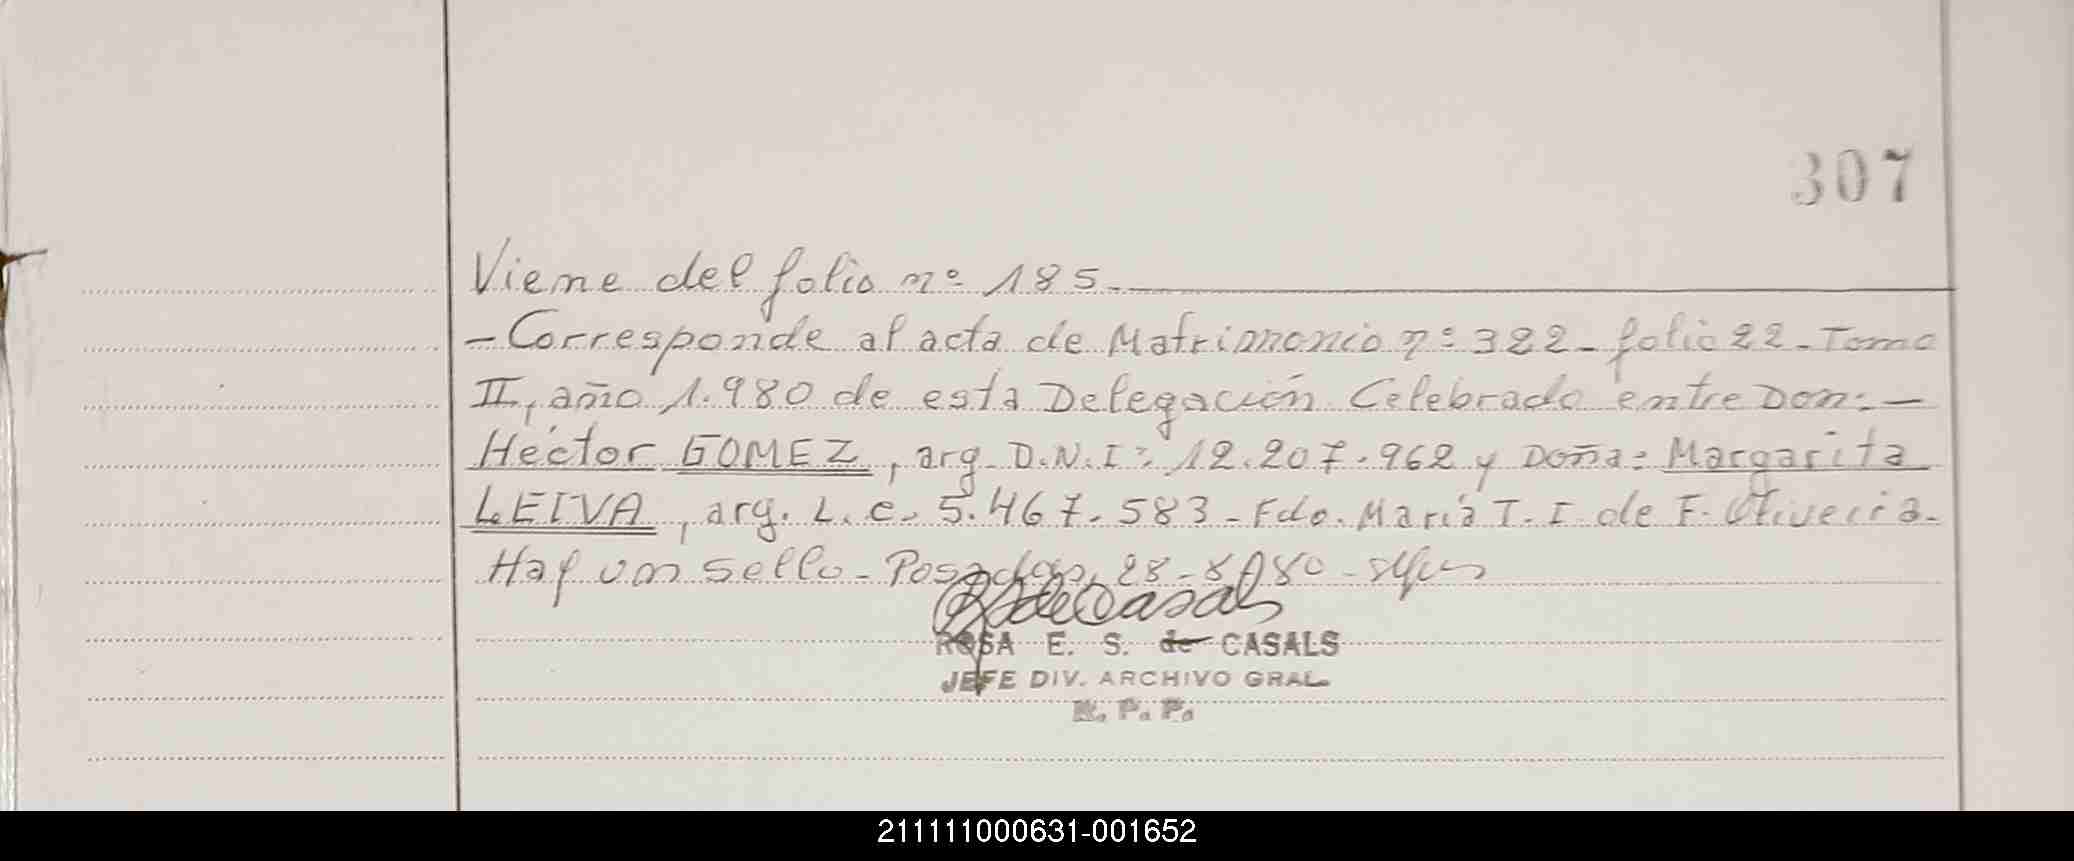 307
Viene del folio nº 185.
- Corresponde al acta de Matrimonio nº 322 - folio 22 - Tomo
II, año 1.980 de esta Delegación Celebrado entre Don: -
Héctor GOMEZ, arg. D.N.I: 12.207.962 y Doña: Margarita
LEIVA, arg. L.C. 5.467.583 - Fdo. María T. I. de F. Oliveira.
Hay un sello - Posadas, 28-8-80 -
ROSA E. S. de CASALS
JEFE DIV. ARCHIVO GRAL
R. P. P.
211111000631-001652